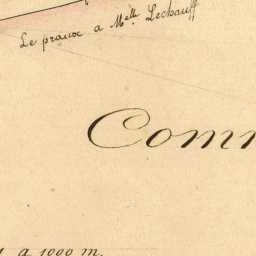 Le praux a Melle Lechauff
Comm
1 a 1000 m.